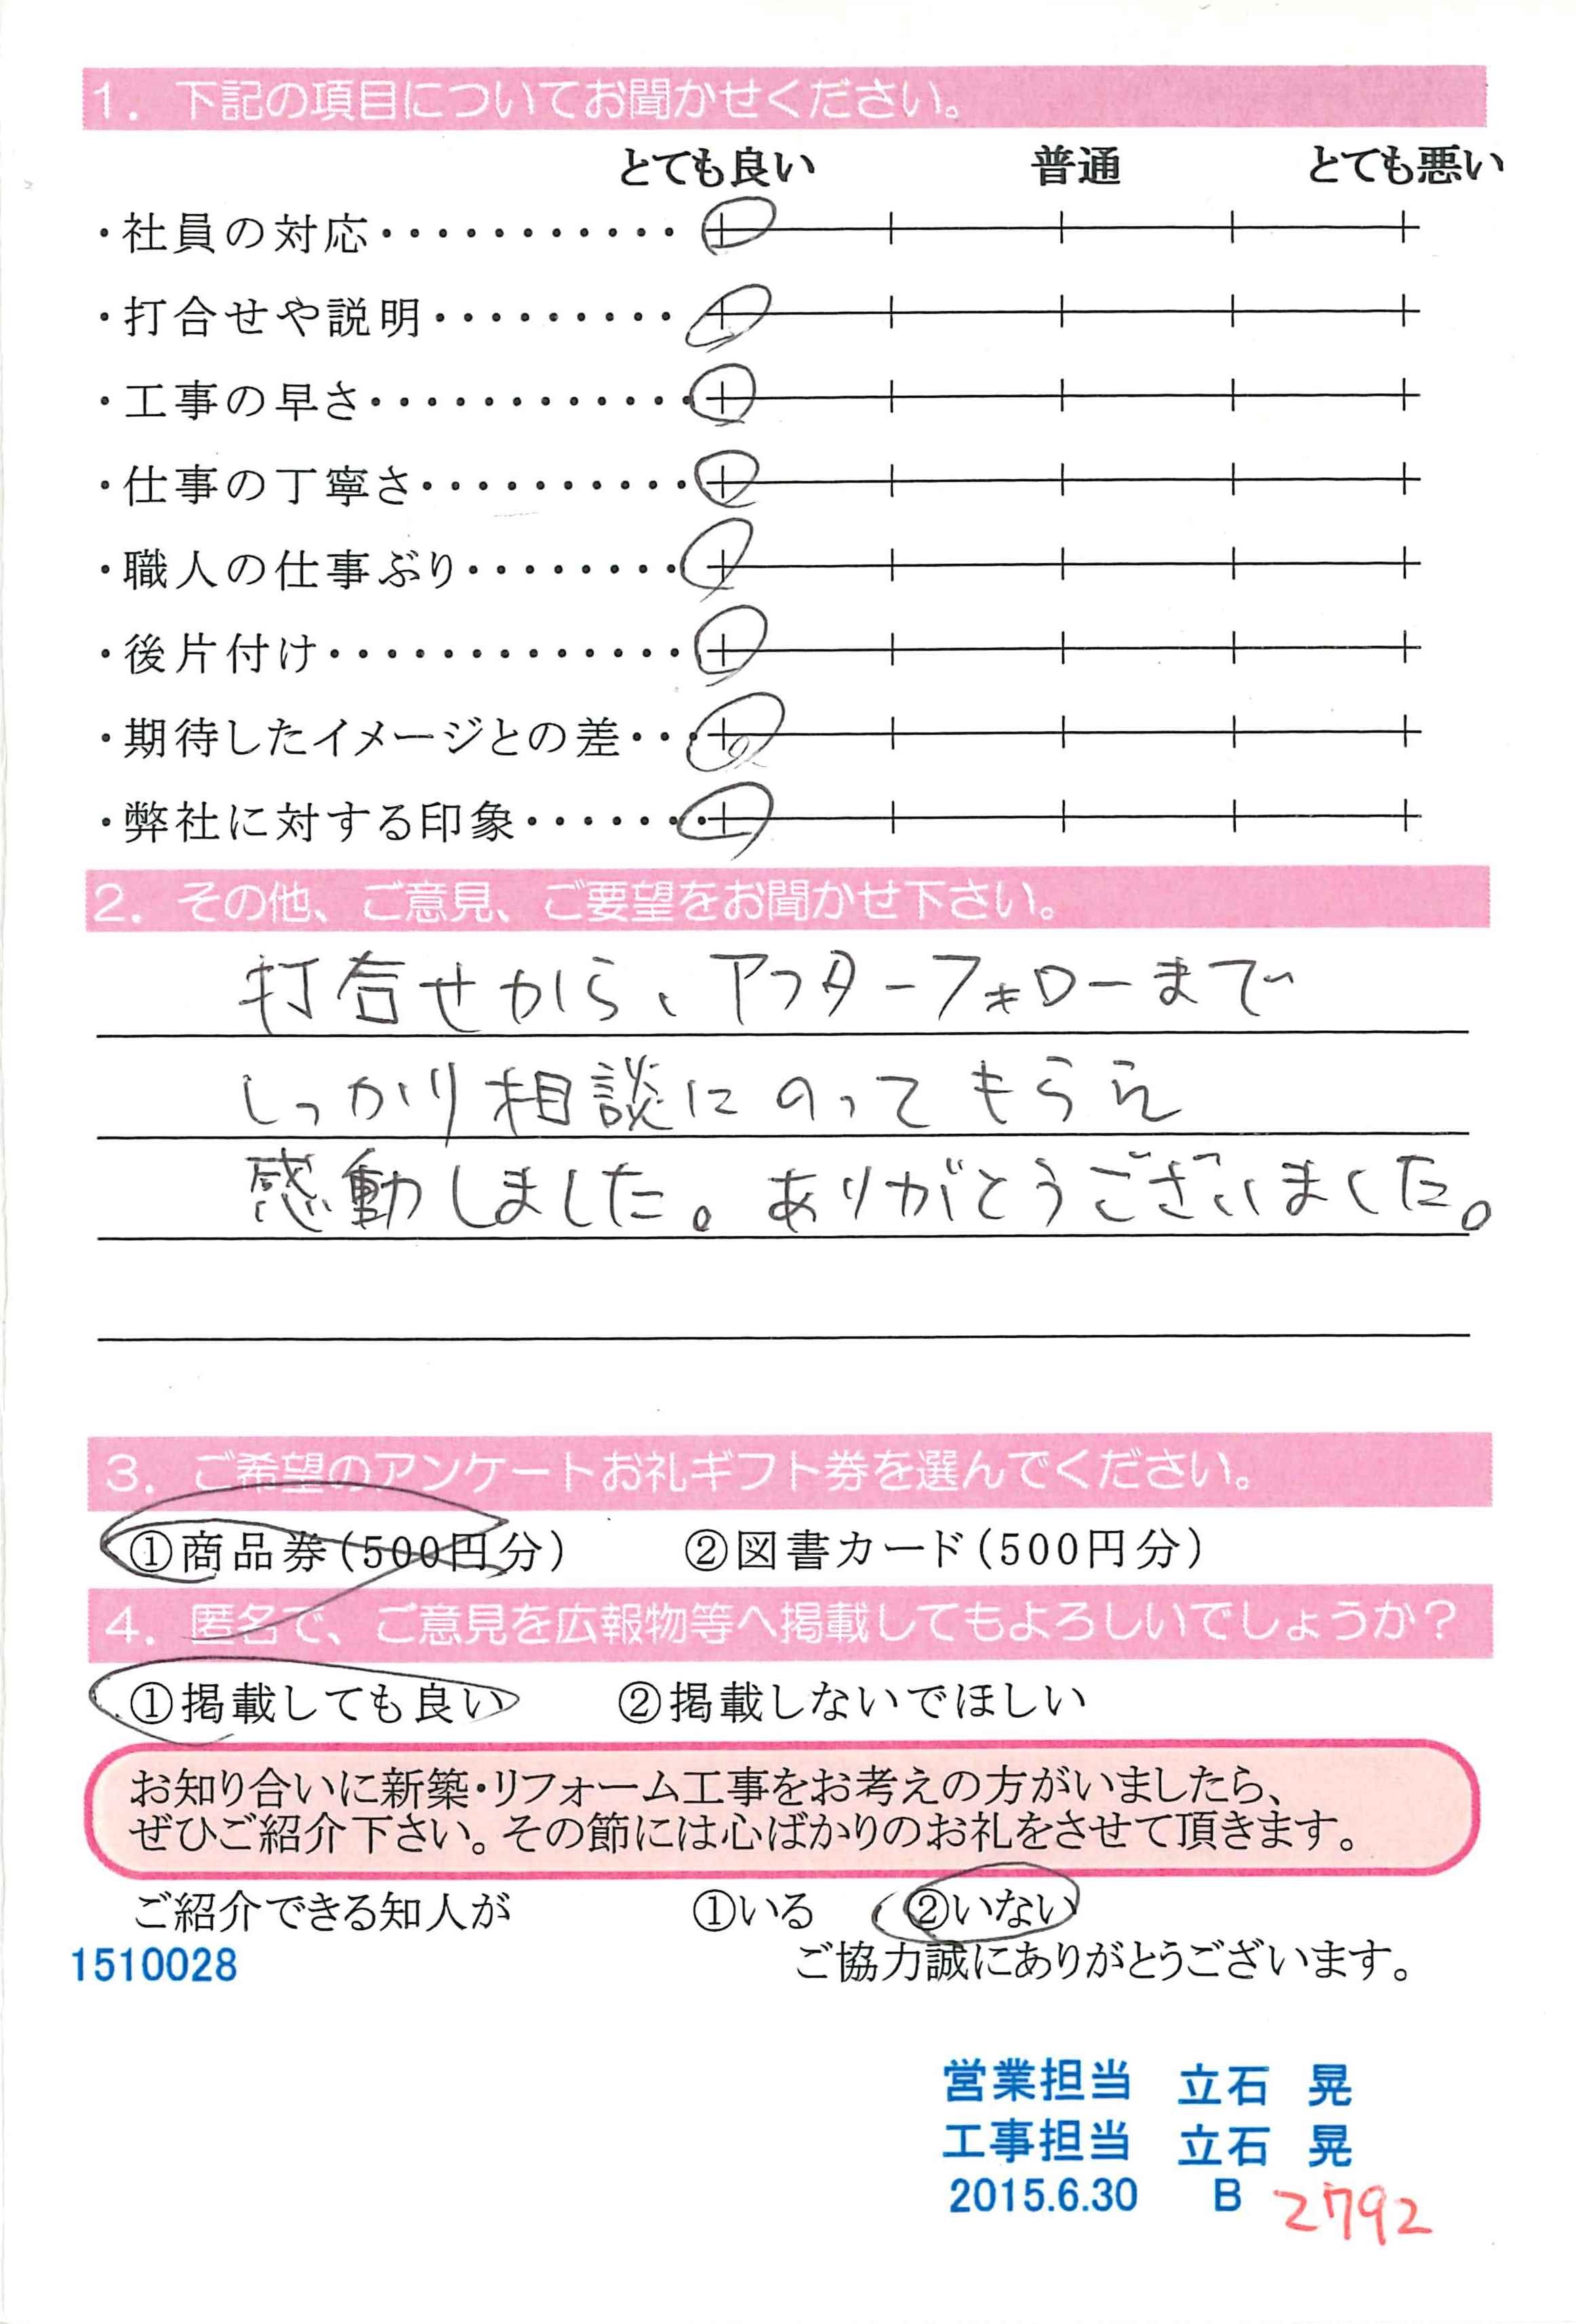 1. 下記の項目についてお聞かせください。
とても良い 普通 とても悪い
・社員の対応・・・・・・・・・・・
・打合せや説明・・・・・・・・・
・工事の早さ・・・・・・・・・・・・
・仕事の丁寧さ・・・・・・・・・・
・職人の仕事ぶり・・・・・・・・
・後片付け・・・・・・・・・・・・・
・期待したイメージとの差・・・
・弊社に対する印象・・・・・・・
2. その他、ご意見、ご要望をお聞かせ下さい。
打合せから、アフターフォローまで
しっかり相談にのってもらえ
感動しました。ありがとうございました。
3. ご希望のアンケートお礼ギフト券を選んでください。
①商品券(500円分) ②図書カード(500円分)
4. 匿名で、ご意見を広報物等へ掲載してもよろしいでしょうか?
①掲載しても良い ②掲載しないでほしい
お知り合いに新築・リフォーム工事をお考えの方がいましたら、
ぜひご紹介下さい。その節には心ばかりのお礼をさせて頂きます。
ご紹介できる知人が ①いる ②いない
1510028 ご協力誠にありがとうございます。
営業担当 立石 晃
工事担当 立石 晃
2015.6.30 B 2792